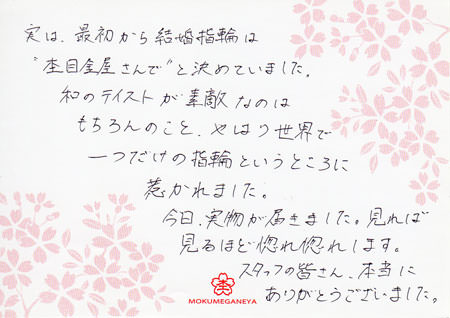 実は、最初から結婚指輪は
"杢目金屋さんで"と決めていました。
和のテイストが素敵なのは
もちろんのこと、やはり世界で
一つだけの指輪というところに
惹かれました。
今日、実物が届きました。見れば
見るほど惚れ惚れします。
スタッフの皆さん、本当に
ありがとうございました。
MOKUMEGANEYA